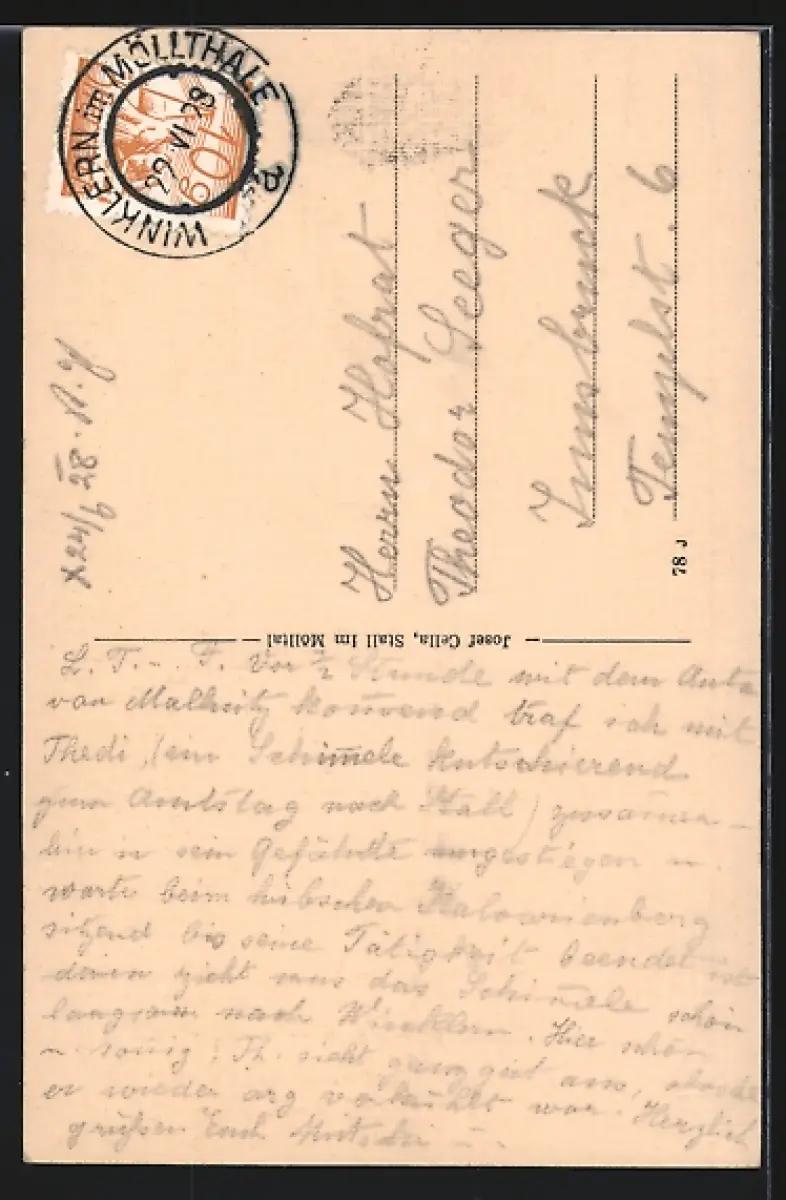 WINKLERN im MÖLLTHALE
22 VI 28
a
60
Herrn Hofrat
Theodor Seeger
Innsbruck
Tempelst. 6
78 J
x 24/6 28.
Josef Cella, Stall im Mölltal
L. T. - F. Vor ½ Stunde mit dem Auto
von Mallnitz kommend traf ich mit
Thedi, (ein Schimmele kutschierend
zum Amtstag nach Stall) zusammen -
bin in sein Gefährte umgestiegen u.
warte beim hübschen
sitzend bis seine Tätigkeit beendet ist
dann zieht uns das Schimmele schön
langsam nach Winklern. Hier schön
u. sonnig; Th. sieht ganz gut aus, obwohl
er wieder arg verkühlt war. Herzlich
grüßen Euch